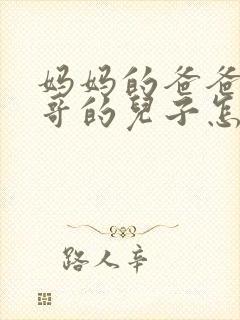 妈妈的爸爸
哥的儿子怎
路人辛